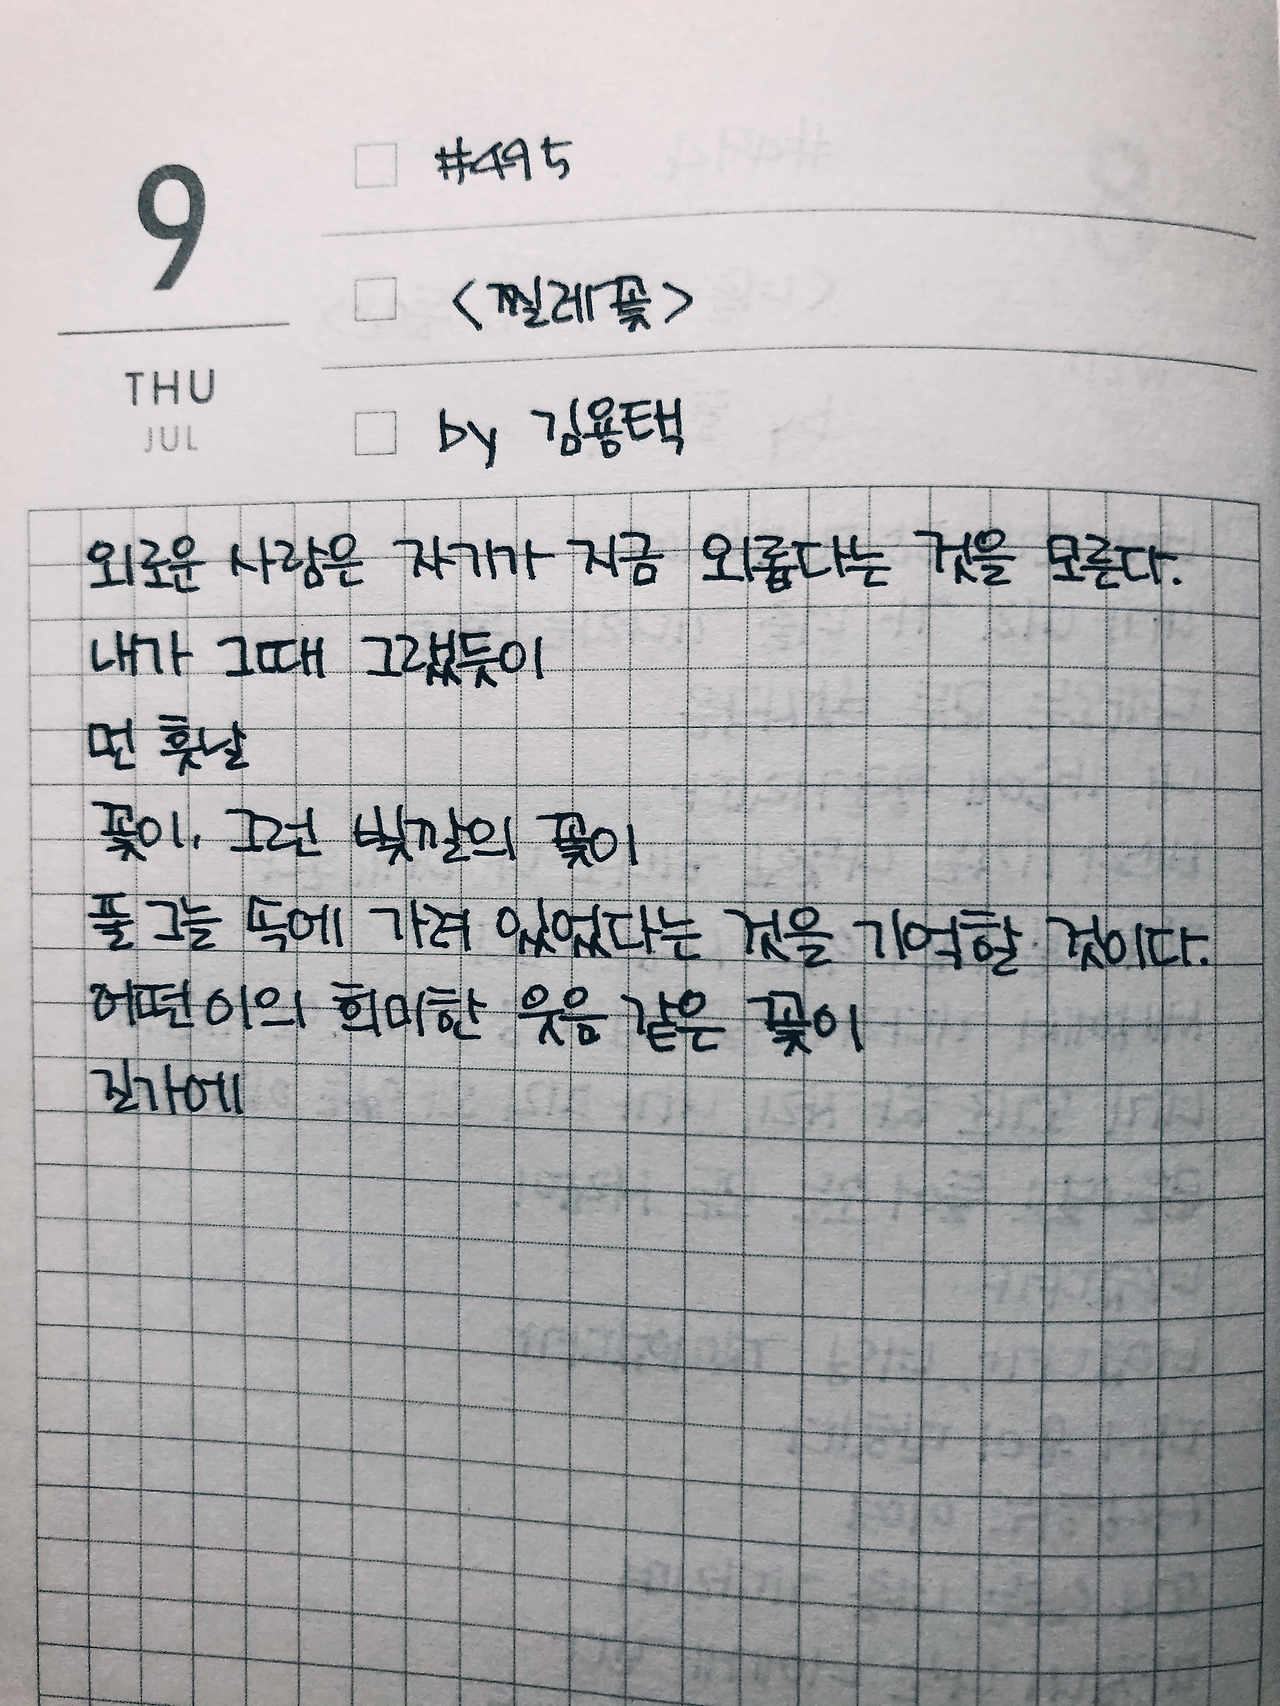 9
THU
JUL
#495
<찔레꽃>
by 김용택
외로운 사람은 자기가 지금 외롭다는 것을 모른다.
내가 그때 그랬듯이
먼 훗날
꽃이, 그런 빛깔의 꽃이
풀 그늘 속에 가려 있었다는 것을 기억할 것이다.
어떤 이의 희미한 웃음 같은 꽃이
길가에